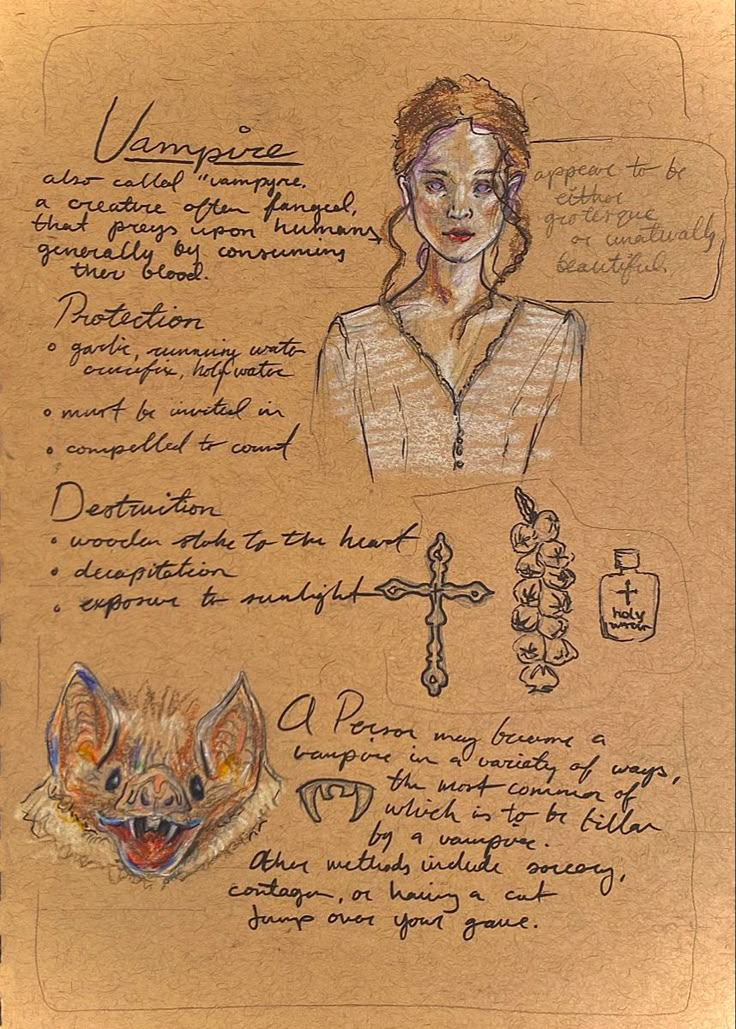 Vampire
also called "vampyre.
a creature often fanged,
that preys upon humans,
generally by consuming
ther blood.
appear to be
either
grotesque
or unaturally
beautiful.
Protection
garlic, running water
crucifix, holy water
must be invited in
compelled to count
Destruition
wooden stake to the heart
decapitation
exposure to sunlight
holy
water
A Person may become a
vampire in a variety of ways,
the most common of
which is to be
by a vampire.
Other methods include sorcery,
contagon, or having a cat
Jump over your gave.